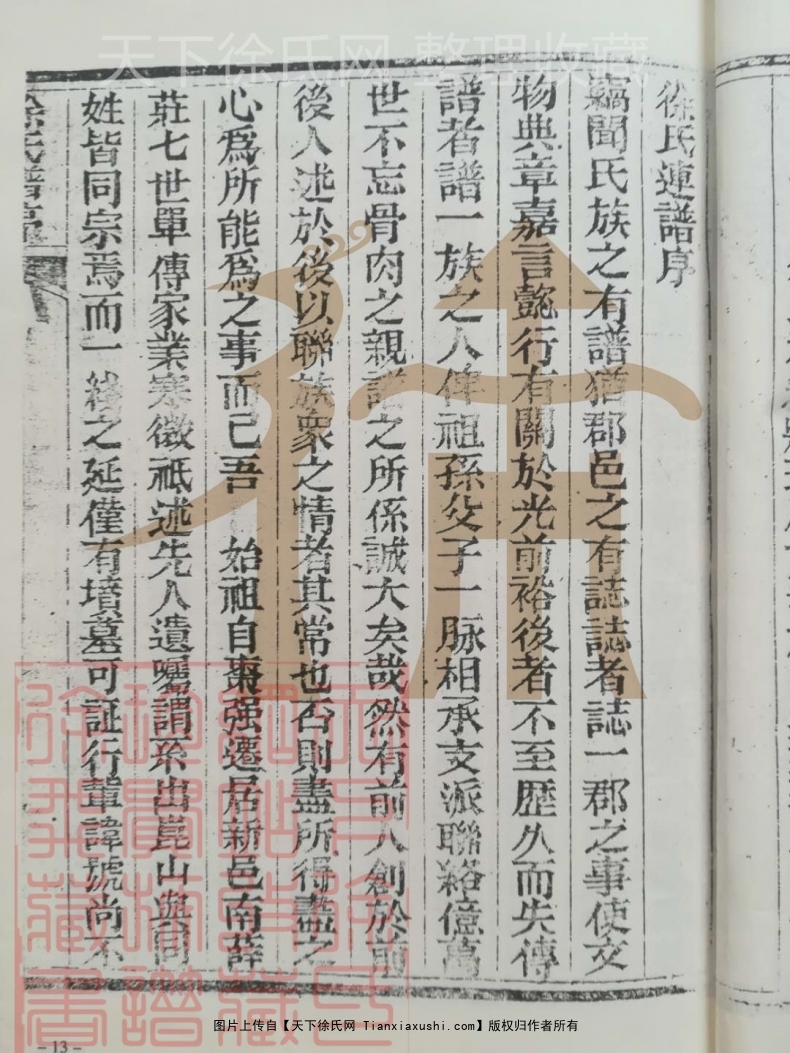 天下徐氏网 整理收藏
徐氏連譜序
竊聞氏族之有譜猶郡邑之有誌誌者誌一郡之事使文
物典章嘉言懿行有關於光前裕後者不至歷久而失傳
譜者譜一族之人俾祖孫父子一脉相承支派聯絡億萬
世不忘骨肉之親譜之所係誠大矣哉然有前人創於前
後人述於後以聯族衆之情者其常也否則盡所得盡之
心爲所能爲之事而已吾 始祖自棗强遷居新邑南薛
莊七世單傳家業寒微祇述先人遺囑謂系出崑山與同
姓皆同宗焉而一綫之延僅有墳墓可証行輩諱號尚不
徐氏譜
图片上传自【天下徐氏网 Tianxiaxushi.com】版权归作者所有
- 13 -